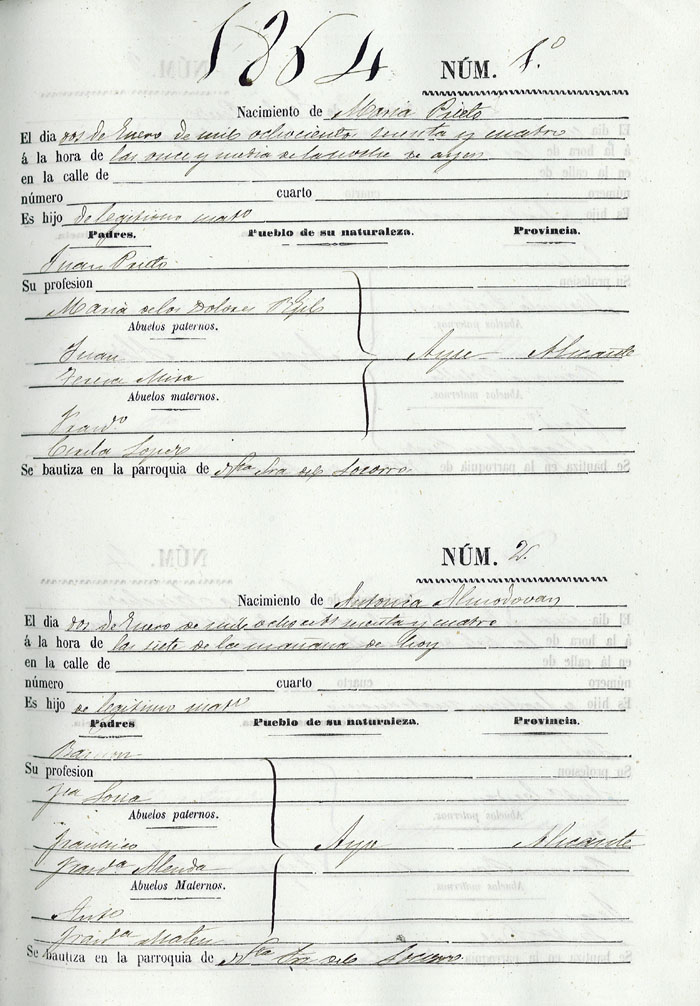 1864 NÚM. 1.º
Nacimiento de Maria Prieto
El dia dos de Enero de mil ochocientos sesenta y cuatro
á la hora de las once y media de la noche de ayer
en la calle de
número cuarto
Es hijo de legitimo matº
Padres. Pueblo de su naturaleza. Provincia.
Juan Prieto
Su profesion
Maria de los Dolores
Abuelos paternos.
Juan Aspe Alicante
Teresa Mira
Abuelos maternos.
Lopez
Se bautiza en la parroquia de Ntra Sra del Socorro
NÚM. 2.
Nacimiento de Antonia Almodovar
El dia dos de Enero de mil ochocts sesenta y cuatro
á la hora de las siete de la mañana de hoy
en la calle de
número cuarto
Es hijo de legitimo matº
Padres Pueblo de su naturaleza. Provincia.
Ramon
Su profesion
Fca Soria
Abuelos paternos.
Francisco Aspe Alicante
Franca
Abuelos Maternos.
Antº
Franca Mateu
Se bautiza en la parroquia de Ntra Sra del Socorro